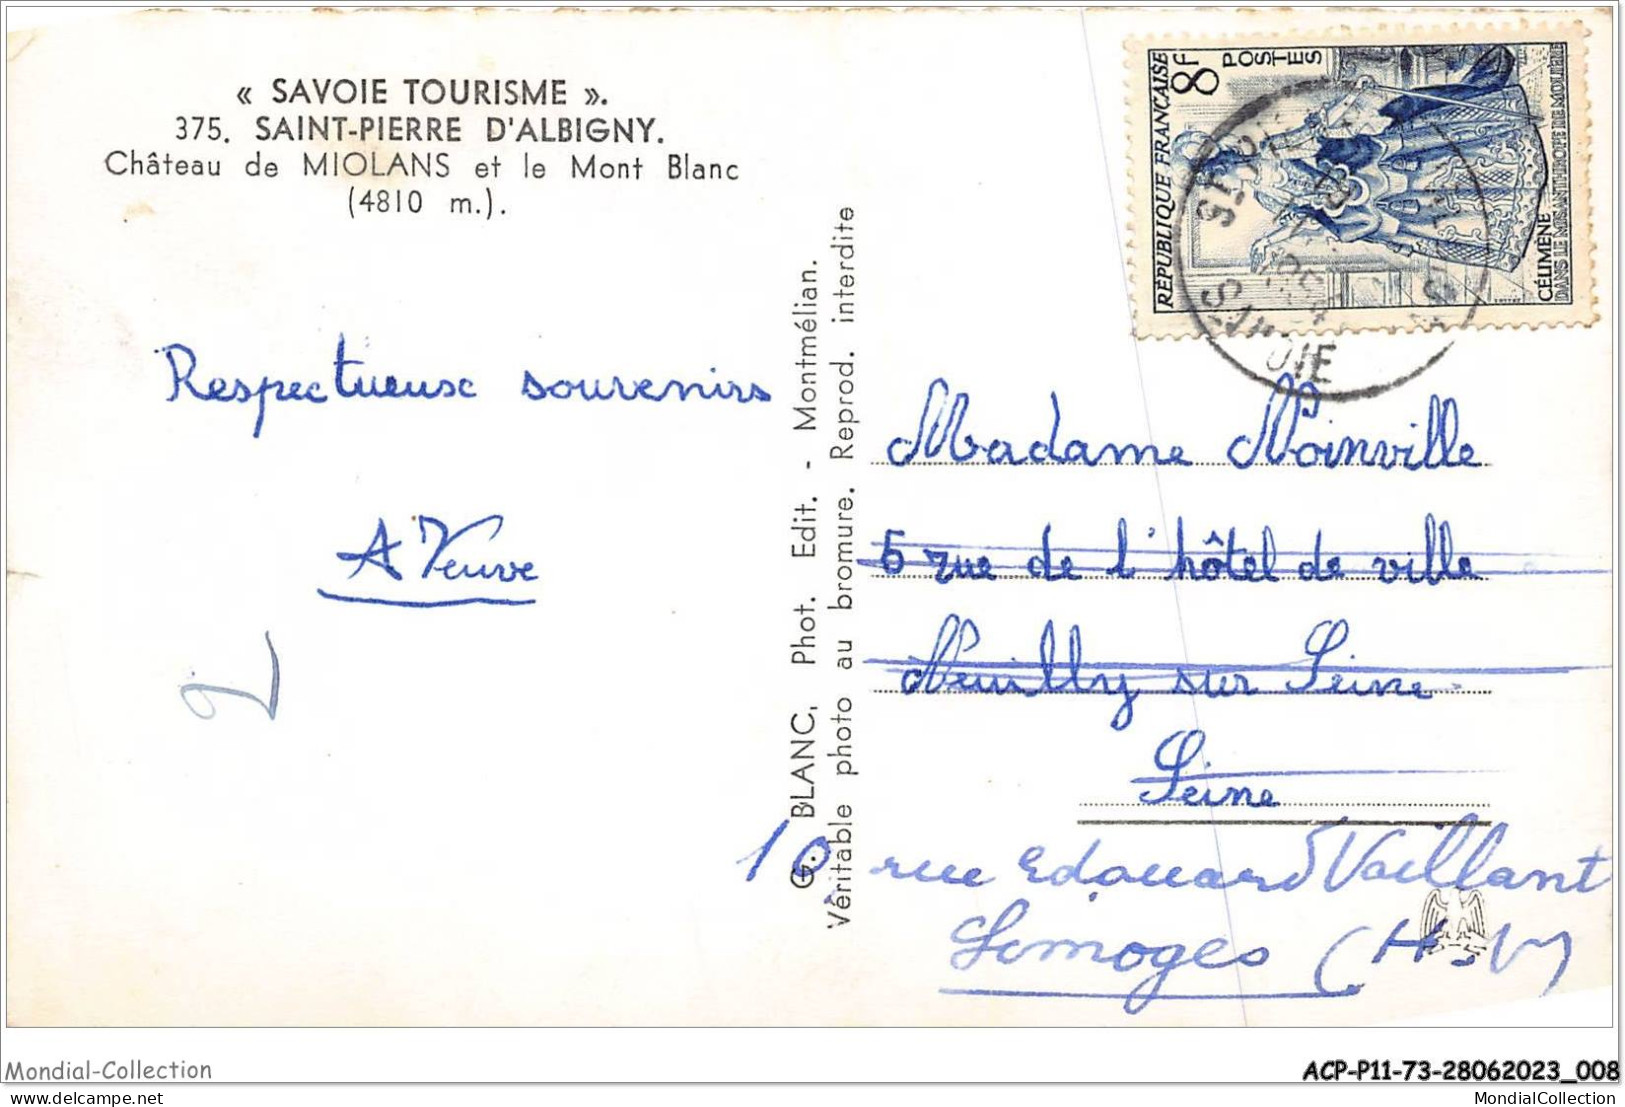 « SAVOIE TOURISME ».
375. SAINT-PIERRE D'ALBIGNY.
Château de MIOLANS et le Mont Blanc
(4810 m.).
Respectueusc souvenirs
A Veuve
G. BLANC, Phot. Edit. - Montmélian.
Véritable photo au bromure. Reprod. interdite
RÉPUBLIQUE FRANÇAISE
8F
POSTES
CÉLIMÈNE
DANS LE MISANTHROPE DE MOLIÈRE
SAVOIE
Madame Noinville
5 rue de l'hôtel de ville
Neuilly sur Seine
Seine
10, rue Edouard Vaillant
Limoges (H-V)
Mondial-Collection
ACP-P11-73-28062023_008
www.delcampe.net
MondialCollection